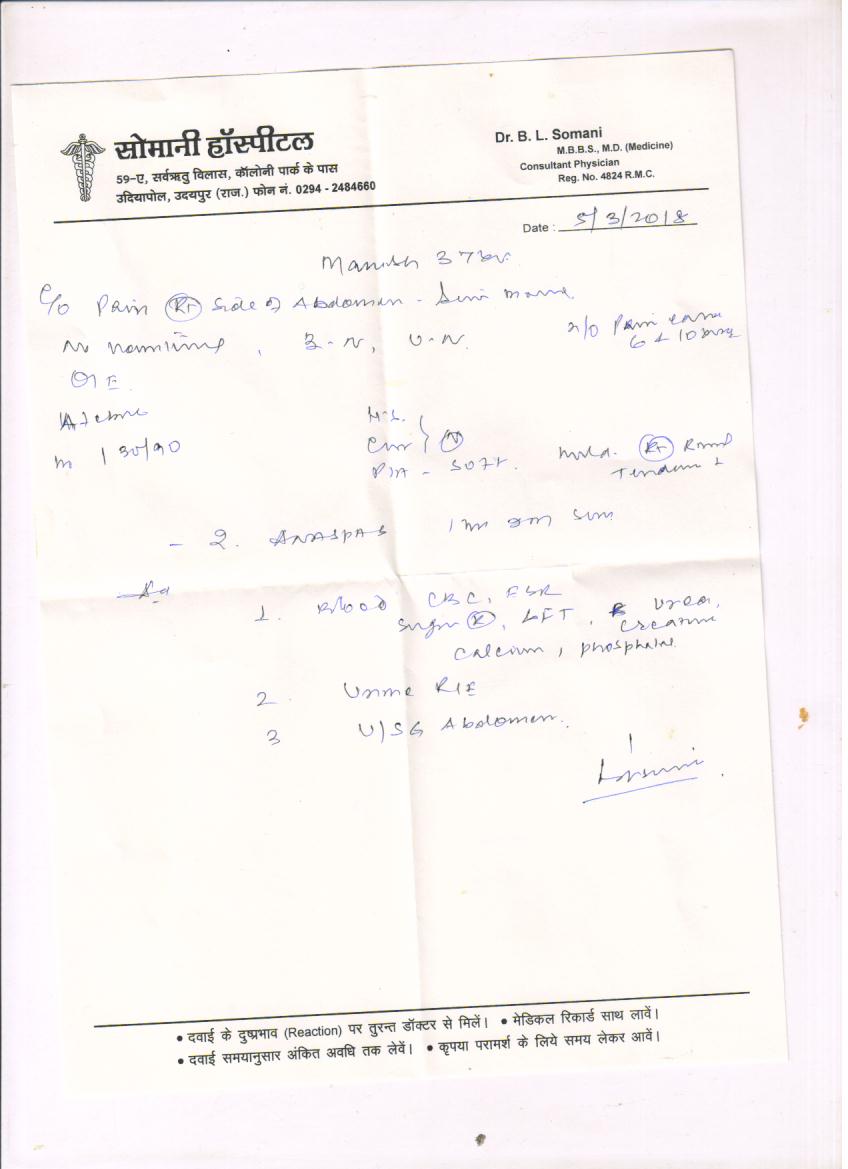 सोमानी हॉस्पीटल
59-ए, सर्वऋतु विलास, कॉलोनी पार्क के पास
उदियापोल, उदयपुर (राज.) फोन नं. 0294 - 2484660
Dr. B. L. Somani
M.B.B.S., M.D. (Medicine)
Consultant Physician
Reg. No. 4824 R.M.C.
Date : 5/3/2018
Manish 37
C/o Pain Rt side of Abdomen -
No vomiting, B-N, U-N.
H/o Pain
O/E
130/90
P/A - Soft. mild Rt
2. ANASPAS
1. Blood CBC, ESR
Sugar R, LFT, Urea,
Creatinine
Calcium, phosphate
2. Urine R/E
3 U/SG Abdomen.
• दवाई के दुष्प्रभाव (Reaction) पर तुरन्त डॉक्टर से मिलें। • मेडिकल रिकार्ड साथ लावें।
• दवाई समयानुसार अंकित अवधि तक लेवें। • कृपया परामर्श के लिये समय लेकर आवें।